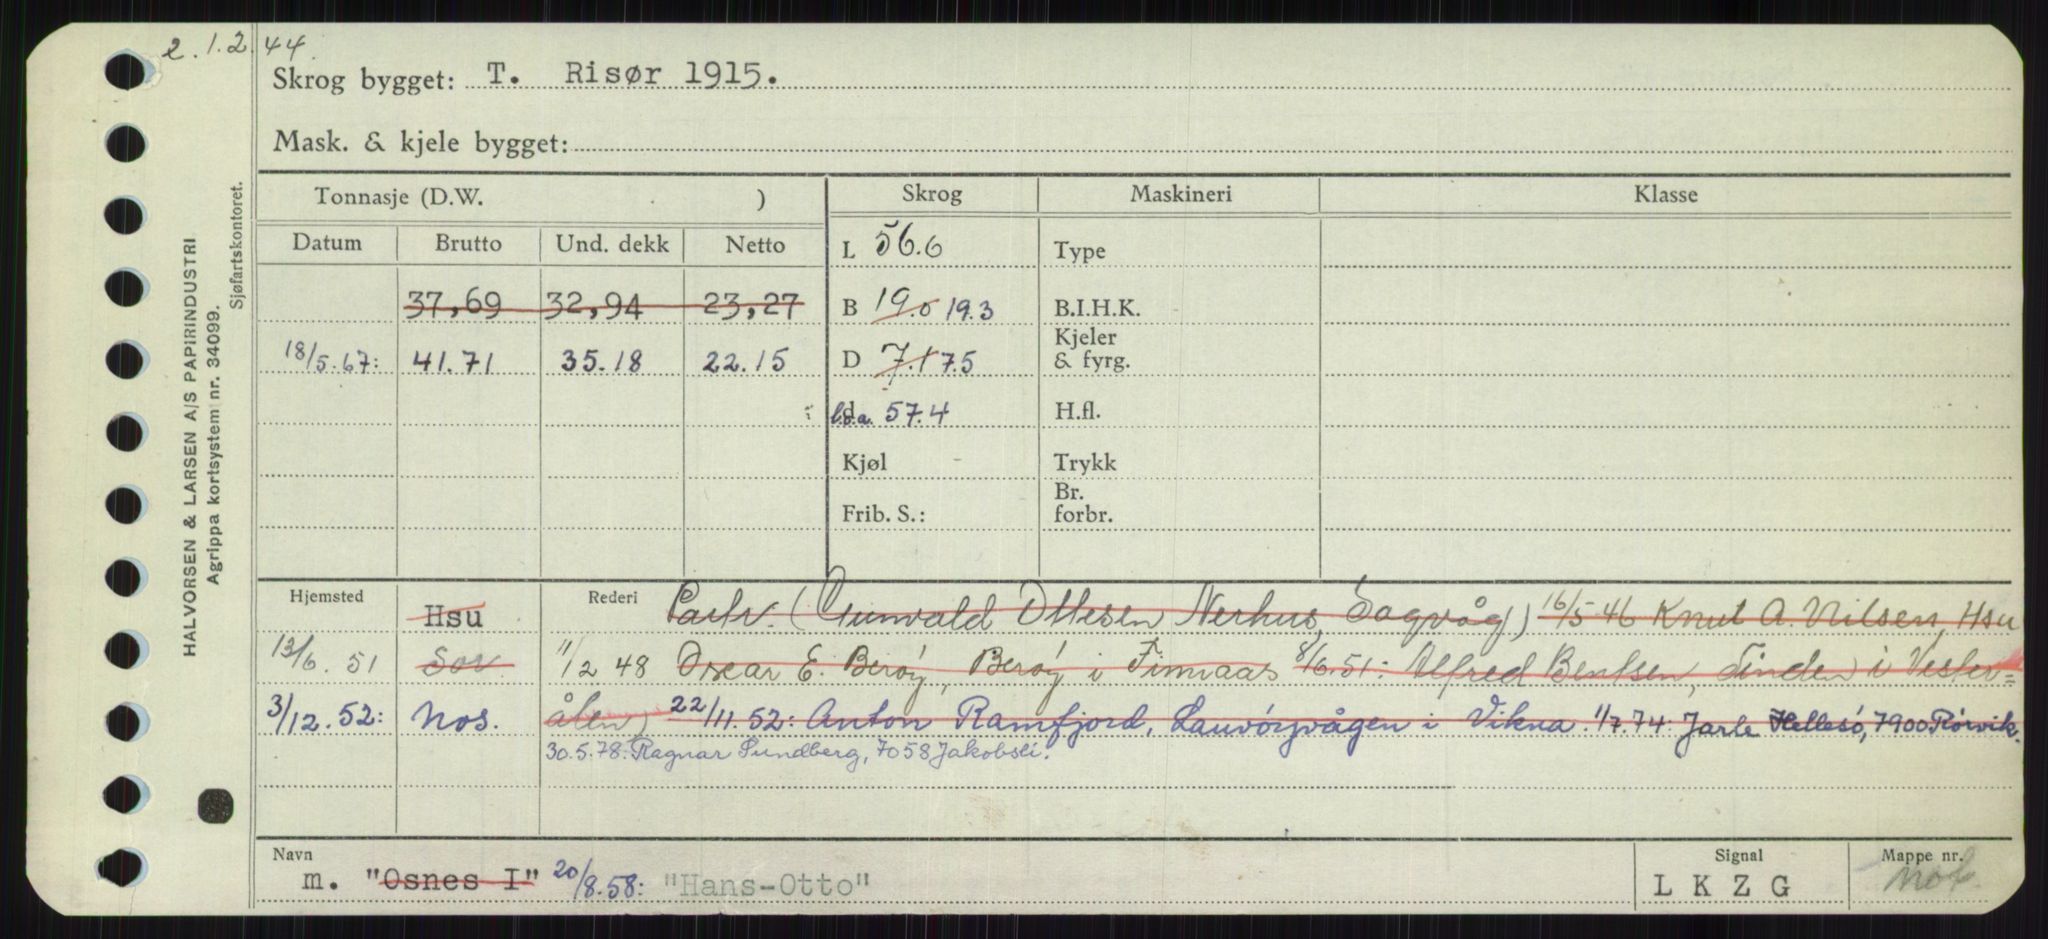 2.1.2.44.
Skrog bygget: T. Risør 1915.
Mask. & kjele bygget:
HALVORSEN & LARSEN A/S PAPIRINDUSTRI
Agrippa kortsystem nr. 34099.
Sjøfartskontoret.
Tonnasje (D.W. ) Skrog Maskineri Klasse
Datum Brutto Und. dekk Netto
L 56.6 Type
37,69 32,94 23,27 B 19.0 19.3 B.I.H.K.
18/5.67: 41.71 35.18 22.15 D 7.1 7.5 Kjeler & fyrg.
d l.o.a. 57.4 H.fl.
Kjøl Trykk
Frib. S.: Br. forbr.
Hjemsted Hsu Rederi Partr. (Gunvald Ottesen Nerhus, Sagvåg) 16/5 46 Knut A. Nilsen, Hsu
13/6.51 Sor 11/2 48 Oscar E. Berøy, Berøy i Finnaas 8/6.51: Alfred Bentsen, Tinden i Vester=
3/12.52: Nos. ålen) 22/11.52: Anton Ramfjord, Lauvøyvågen i Vikna. 1/7.74: Jarle Hellesö, 7900 Rörvik.
30.5.78: Ragnar Sundberg, 7058 Jakobsli.
Navn m. "Osnes I" 20/8.58: "Hans-Otto"
Signal L K Z G
Mappe nr.